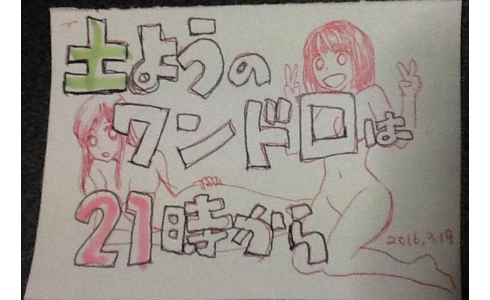 土ようの
ワンドロは
21時から
2016.3.19